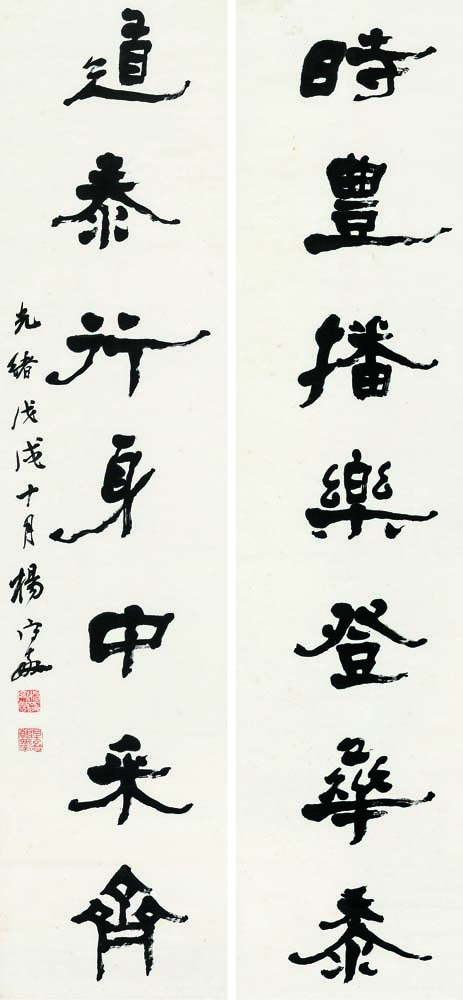 時豐播樂登華泰
道泰行身中采齊
光緒戊戌十月楊守敬